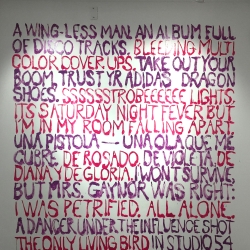 A WING-LESS MAN. AN ALBUM FULL
OF DISCO TRACKS. BLEEDING MULTI
COLOR COVER UPS. TAKE OUT YOUR
BOOM. TRUST YR ADIDAS DRAGON
SHOES. SSSSSSTROBEEEEEE LIGHTS.
IT'S SATURDAY NIGHT FEVER BUT
I'M IN MY ROOM FALLING APART.
UNA PISTOLA — UNA OLA QUE ME
CUBRE. DE ROSADO. DE VIOLETA. DE
DIANA Y DE GLORIA. I WON'T SURVIVE,
BUT MRS. GAYNOR WAS RIGHT:
I WAS PETRIFIED. ALL ALONE.
A DANCER UNDER THE INFLUENCE SHOT
THE ONLY LIVING BIRD IN STUDIO 54